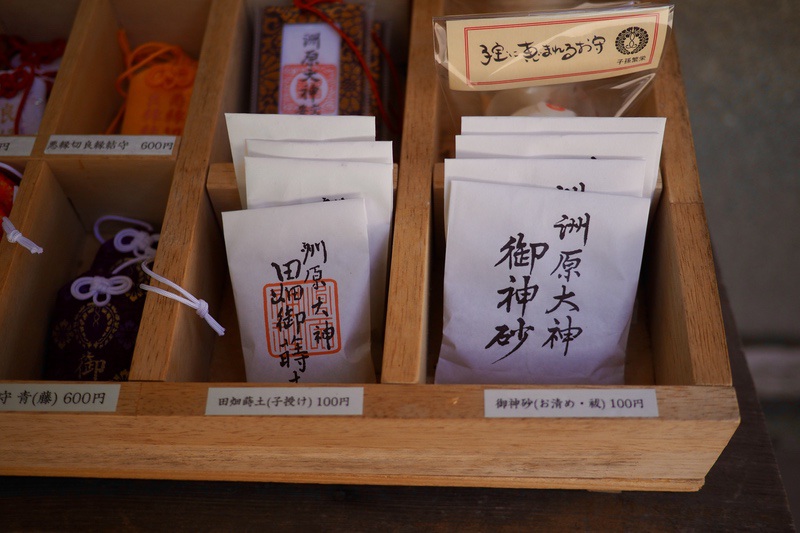 洲原大神
子宝に恵まれるお守
子孫繁栄
円
悪縁切良縁結守 600円
洲原大神
田畑御蒔土
洲原大神
御神砂
御
守 青(藤) 600円
田畑蒔土(子授け) 100円
御神砂(お清め・祓) 100円